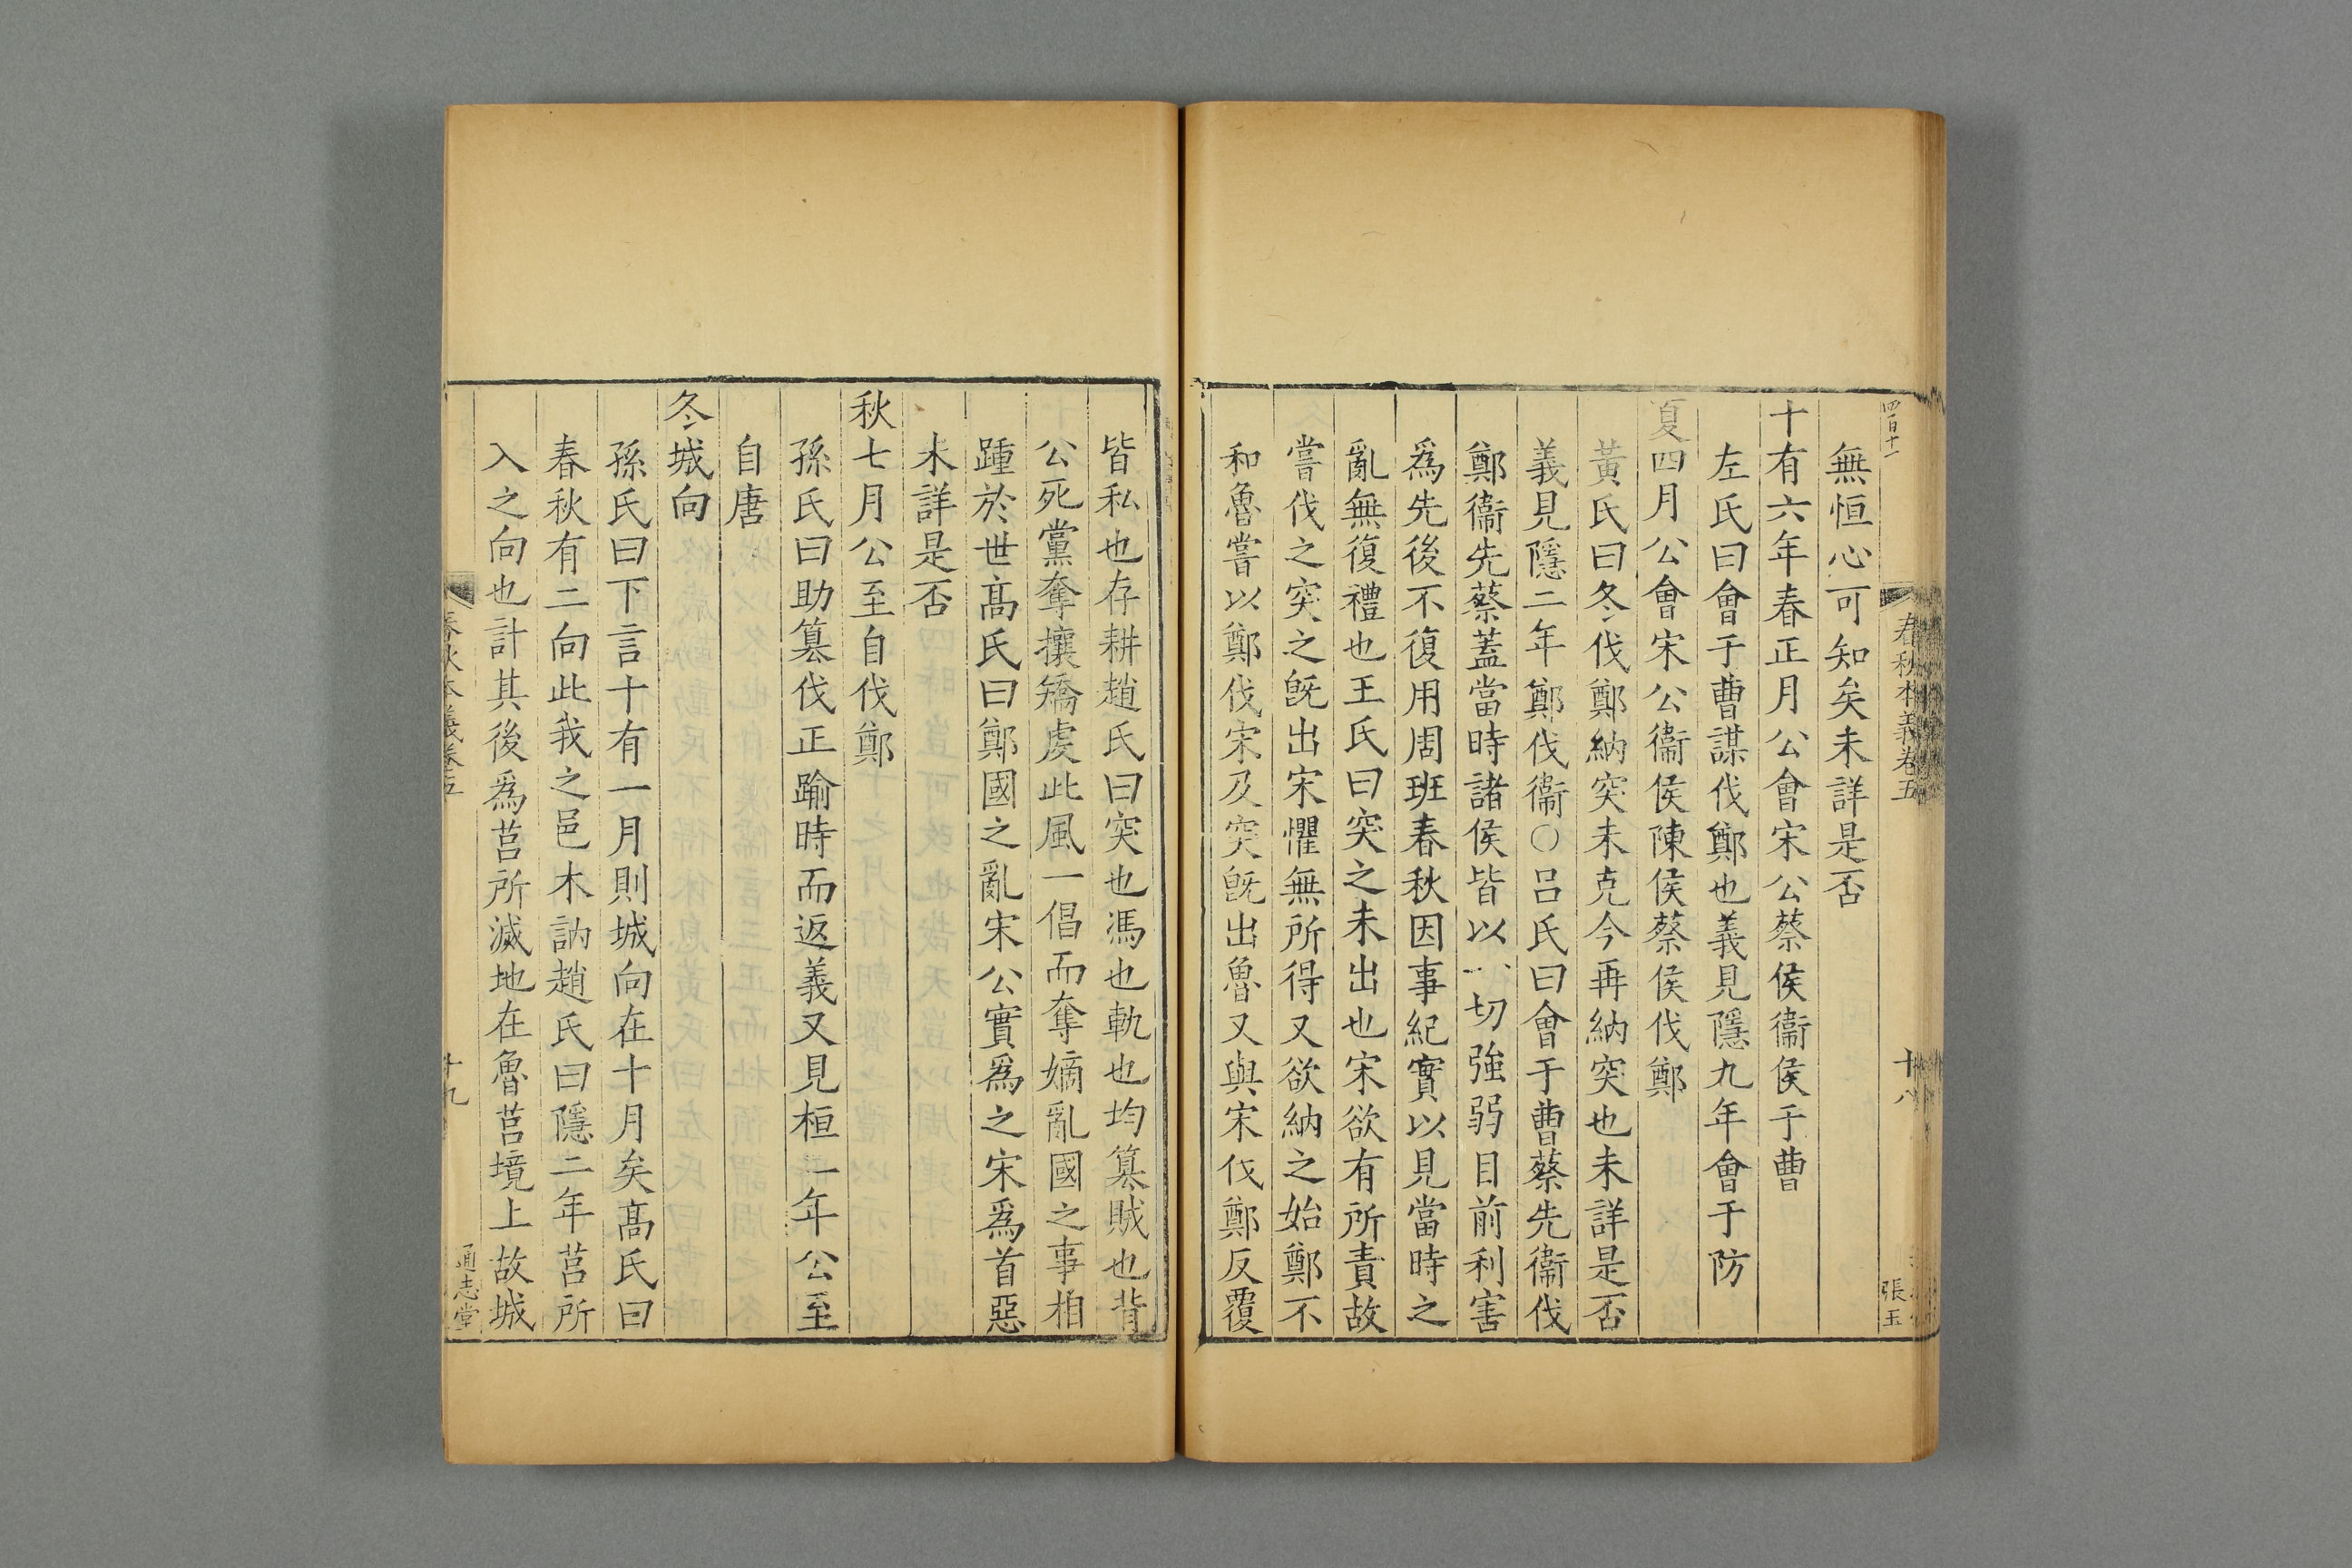 四百十二
春秋本義卷五
十八
張玉
無恒心可知矣未詳是否
十有六年春正月公會宋公蔡侯衞侯于曹
左氏曰會于曹謀伐鄭也義見隱九年會于防
夏四月公會宋公衞侯陳侯蔡侯伐鄭
黃氏曰冬伐鄭納突未克今再納突也未詳是否
義見隱二年鄭伐衞〇呂氏曰會于曹蔡先衞伐
鄭衞先蔡蓋當時諸侯皆以一切強弱目前利害
爲先後不復用周班春秋因事紀實以見當時之
亂無復禮也王氏曰突之未出也宋欲有所責故
嘗伐之突之旣出宋懼無所得又欲納之始鄭不
和魯嘗以鄭伐宋及突旣出魯又與宋伐鄭反覆
皆私也存耕趙氏曰突也馮也軌也均篡賊也背
公死黨奪攘矯虔此風一倡而奪嫡亂國之事相
踵於世高氏曰鄭國之亂宋公實爲之宋爲首惡
未詳是否
秋七月公至自伐鄭
孫氏曰助篡伐正踰時而返義又見桓二年公至
自唐
冬城向
孫氏曰下言十有一月則城向在十月矣高氏曰
春秋有二向此我之邑木訥趙氏曰隱二年莒所
入之向也計其後爲莒所滅地在魯莒境上故城
春秋本義卷五
十九
通志堂